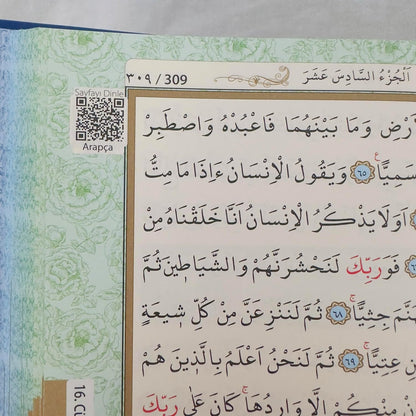 ٣٠٩ / 309
اَلْجُزْءُ السَّادِسَ عَشَرَ
Sayfayı Dinle
Arapça
وَمَا بَيْنَهُمَا فَاعْبُدْهُ وَاصْطَبِرْ
سَمِيًّاۚ ﴿٦٥﴾ وَيَقُولُ الْاِنْسَانُ ءَاِذَا مَا مِتُّ
اَوَلَا يَذْكُرُ الْاِنْسَانُ اَنَّا خَلَقْنَاهُ مِنْ
فَوَرَبِّكَ لَنَحْشُرَنَّهُمْ وَالشَّيَاطٖينَ ثُمَّ
جِثِيًّاۚ ﴿٦٨﴾ ثُمَّ لَنَنْزِعَنَّ مِنْ كُلِّ شٖيعَةٍ
عِتِيًّاۚ ﴿٦٩﴾ ثُمَّ لَنَحْنُ اَعْلَمُ بِالَّذٖينَ هُمْ
مِنْكُمْ اِلَّا وَارِدُهَاۚ كَانَ عَلٰى رَبِّكَ
16.